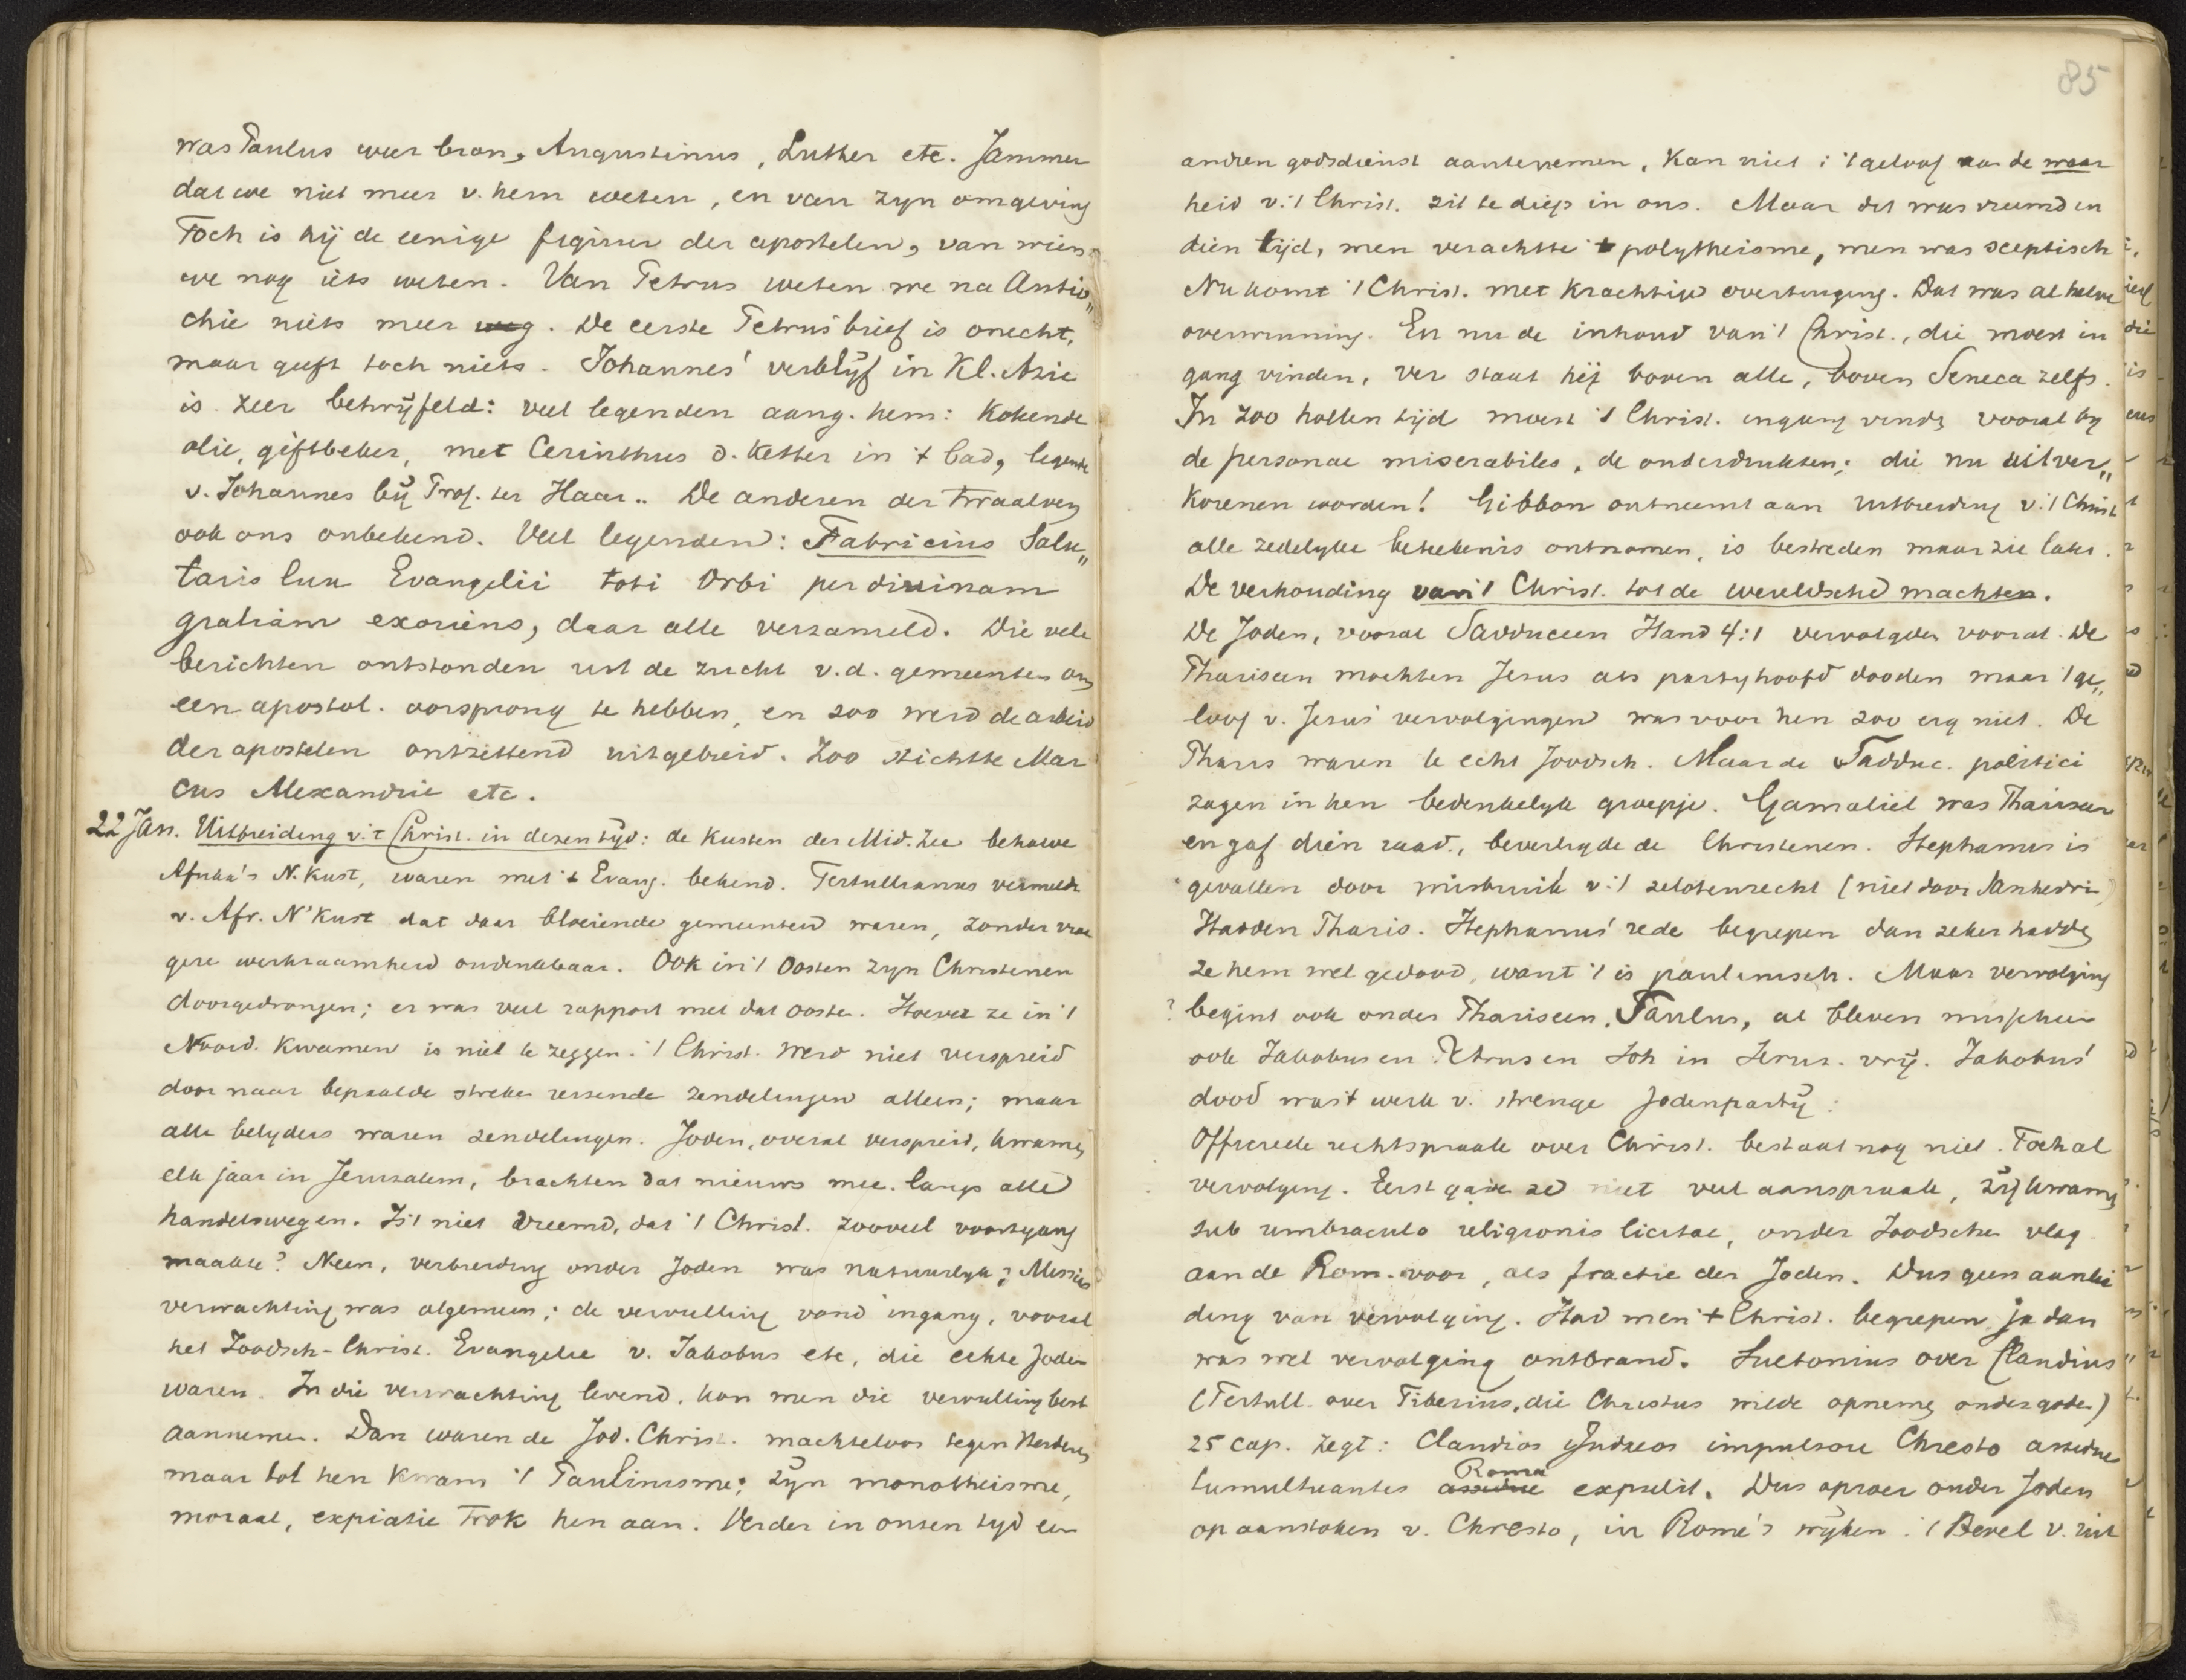 was Paulus weer bron, Augustinus, Luther etc. Jammer
dat we niet meer v. hem weten, en van zyn omgeving
Toch is hij de eenige figuur der apostelen, van wien
we nog iets weten. Van Petrus weten we na Antio„
chie niets meer weg. De eerste Petrus brief is onecht,
maar geeft toch niets. Johannes' verblijf in Kl. Azie
is zeer betwijfeld: veel legenden aang. hem: Kokende
olie, giftbeker, met Cerinthus d. Ketter in 't bad, legende
v. Johannes bij Prof. ter Haar.. De anderen der twaalven
ook ons onbekend. Veel legenden: Fabricius Salu„
taris lux Evangelii toti Orbi per divinam
gratiam exoriens, daar alle verzameld. Die vele
berichten ontstonden uit de zucht v.d. gemeenten om
een apostol. oorsprong te hebben, en zoo werd de arbeid
der apostelen ontzettend uitgebreid. Zoo stichtte Mar
cus Alexandrie etc.
22 Jan. Uitbreiding v. 't Christ. in dezen tyd: de Kusten der Mid. Zee behalve
Afrika's N. Kust, waren met 't Evang. bekend. Tertullianus vermeldt
v. Afr. N'Kust dat daar bloeiende gemeenten waren, zonder vroe
gere werkzaamheid ondenkbaar. Ook in 't Oosten zyn Christenen
doorgedrongen; er was veel rapport met dat Oosten. Hoever ze in 't
Noord. Kwamen is niet te zeggen. 't Christ. werd niet verspreid
door naar bepaalde streken reizende zendelingen alleen; maar
alle belyders waren zendelingen. Joden, overal verspreid, kwamen
elk jaar in Jeruzalem, brachten dat nieuws mee langs alle
handelswegen. Is 't niet vreemd, dat 't Christ. zooveel voortgang
maakte? Neen, verbreiding onder Joden was natuurlyk; Messias
verwachting was algemeen; de vervulling vond ingang, vooral
het Joodsch-Christ. Evangelie v. Jakobus etc, die echte Joden
waren. In die verwachting levend, kon men die vervulling best
aannemen. Dan waren de Jod. Christ. machteloos tegen Heidenen
maar tot hen kwam 't Paulinisme; zyn monotheisme,
moraal, expiatie trok hen aan. Verder in onzen tyd een
85
andren godsdienst aantenemen, kan niet; 't geloof aan de waar
heid v. 't Christ. zit te diep in ons. Maar dit was vreemd in
dien tijd, men verachtte 't polytheisme, men was sceptisch
Nu komt 't Christ. met krachtige overtuiging. Dat was al halve
overwinning. En nu de inhoud van 't Christ., die moest in
gang vinden, ver staat hij boven alle, boven Seneca zelfs.
In zoo hollen tijd moest 't Christ. ingang vinden vooral by
de personae miserabiles, de onderdrukten; die nu uitver„
korenen worden! Gibbon ontneemt aan uitbreiding v. 't Christ
alle zedelyke beteekenis ontnomen, is bestreden maar zie later.
De verhouding van 't Christ. tot de wereldsche machten.
De Joden, vooral Sadduceen Hand 4:1 vervolgden vooral. De
Phariseen mochten Jesus als partyhoofd dooden maar 't ge„
loof v. Jesus' vervolgingen was voor hen zoo erg niet. De
Pharis waren te echt Joodsch. Maar de Sadduc. politici
zagen in hen bedenkelyk groepje. Gamaliel was Phariseer
en gaf dien raad, beveiligde de Christenen. Stephanus is
gevallen door misbruik v. 't zelotenrecht (niet door Sanhedrin)
Hadden Pharis. Stephanus' rede begrepen dan zeker hadden
ze hem wel gedood, want 't is paulinisch. Maar vervolging
? begint ook onder Phariseen, Paulus, al bleven misschien
ook Jakobus en Petrus en Joh in Jerus. vrij. Jakobus'
dood was 't werk v. strenge Jodenpartij:
Officieele rechtspraak over Christ. bestaat nog niet. Toch al
vervolging. Eerst gave ze niet veel aanspraak, zij kwamen
sub umbraculo religionis licitae, onder Joodsche vlag
aan de Rom. voor, als fractie der Joden. Dus geen aanlei
ding van vervolging. Had men 't Christ. begrepen ja dan
was wel vervolging ontbrand. Suetonius over Claudius
(Tertull. over Tiberius, die Christus wilde opnemen onder goden)
25 cap. zegt: Claudios Judaeos impulsore Chresto assidue
tumultuantes assidue Roma expulit. Dus oproer onder Joden
op aanstoken v. Chresto, in Rome's wijken. 't Bevel v. uit